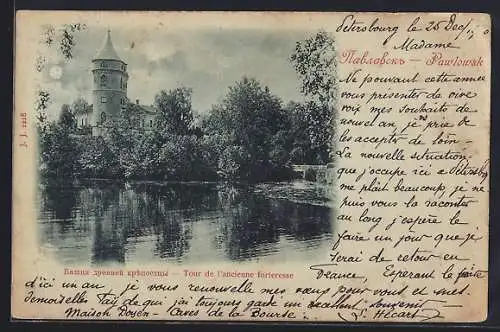 Pétersbourg le 25 Dec/
Madame
Павловскъ — Pawlowsk
Ne pouvant cette année
vous présenter de vive
voix mes souhaits de
nouvel an j'ose prie de
les accepter de loin –
La nouvelle situation
que j'occupe ici a Pétersbourg
me plait beaucoup, je ne
puis vous la raconter
au long j'espère le
faire de vive voix que je
serai de retour en
France Espérant le faire
d'ici un an, je vous renouvelle mes vœux pour vous et
Demoiselles
j'ai toujours gardé un excellent souvenir
Maison Doyen – Caves de la Bourse. L. Hécart
Башня древней крѣпостцы — Tour de l'ancienne forteresse
J. J. 1218